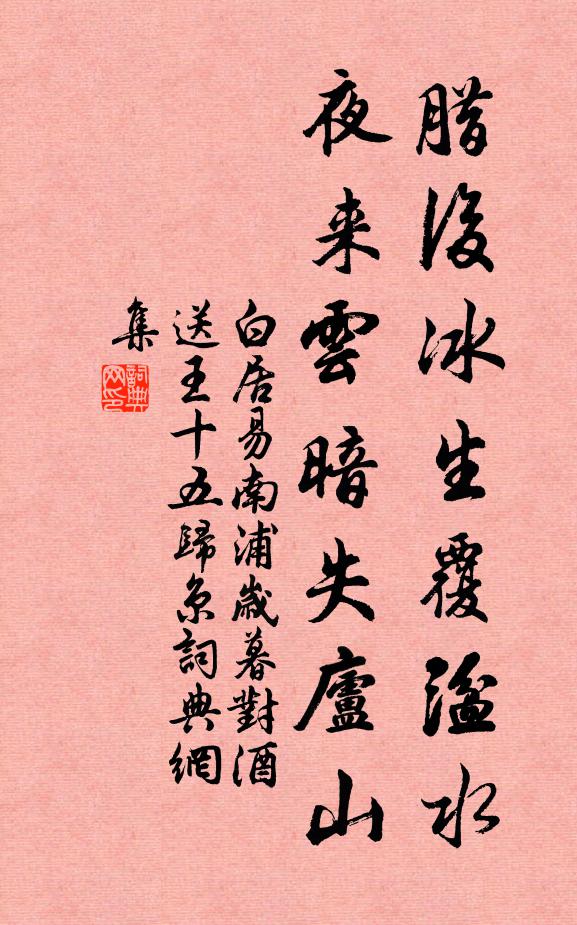 腊後冰生覆湓水
夜来雲暗失廬山
白居易南浦歲暮對酒
送王十五歸京詞典網
集
詞典
网印